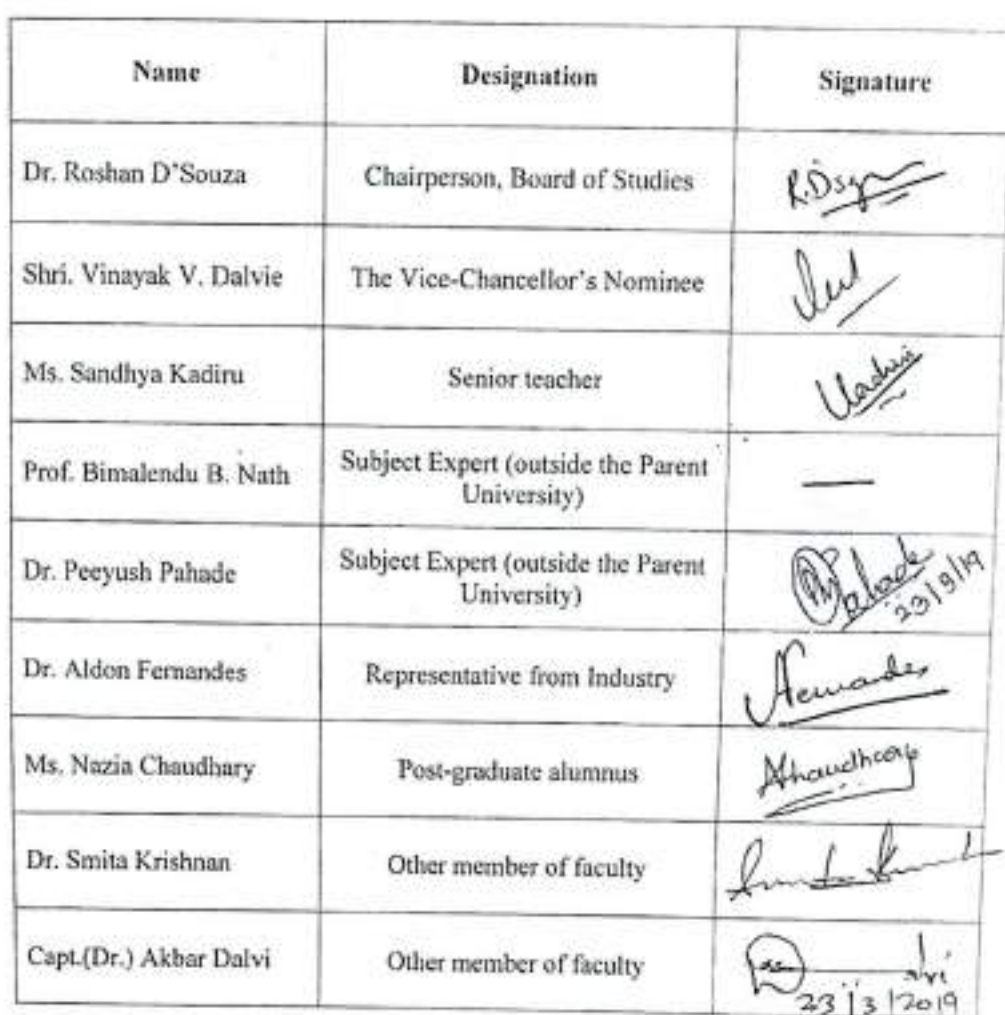 Name Designation Signature
Dr. Roshan D'Souza Chairperson, Board of Studies R.Dsouza
Shri. Vinayak V. Dalvie The Vice-Chancellor's Nominee
Ms. Sandhya Kadiru Senior teacher
Prof. Bimalendu B. Nath Subject Expert (outside the Parent
University) —
Dr. Peeyush Pahade Subject Expert (outside the Parent
University) Pahade
23/3/19
Dr. Aldon Fernandes Representative from Industry Fernandes
Ms. Nazia Chaudhary Post-graduate alumnus NChaudhary
Dr. Smita Krishnan Other member of faculty
Capt.(Dr.) Akbar Dalvi Other member of faculty
23/3/2019